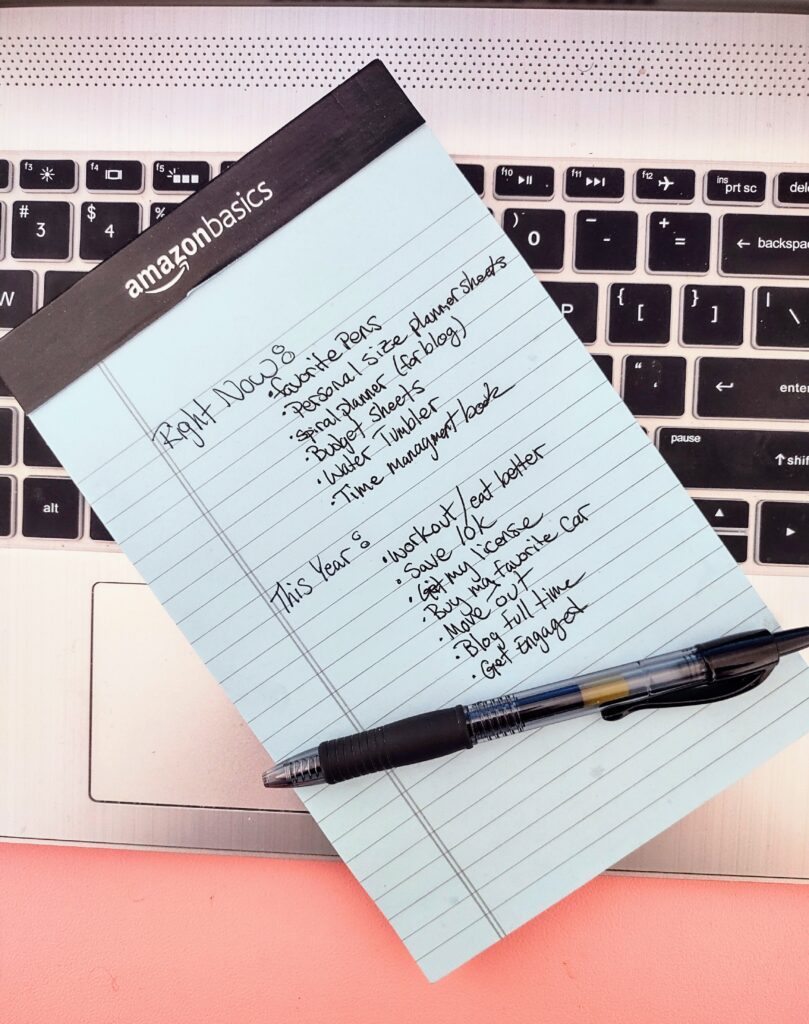 f3
f4
f5
f10
f11
f12
ins
prt sc
dele
#
3
$
4
%
)
0
-
+
=
← backspac
W
P
{
[
}
]
|
\
"
'
enter
pause
↑shif
alt
amazonbasics
Right Now:
• favorite Pens
• Personal size planner sheets
• Spiral planner (for blog)
• Budget sheets
• Water Tumbler
• Time managment book
This Year:
• Workout/eat better
• Save 10K
• Get my license
• Buy my favorite car
• Move out
• Blog full time
• Get Engaged